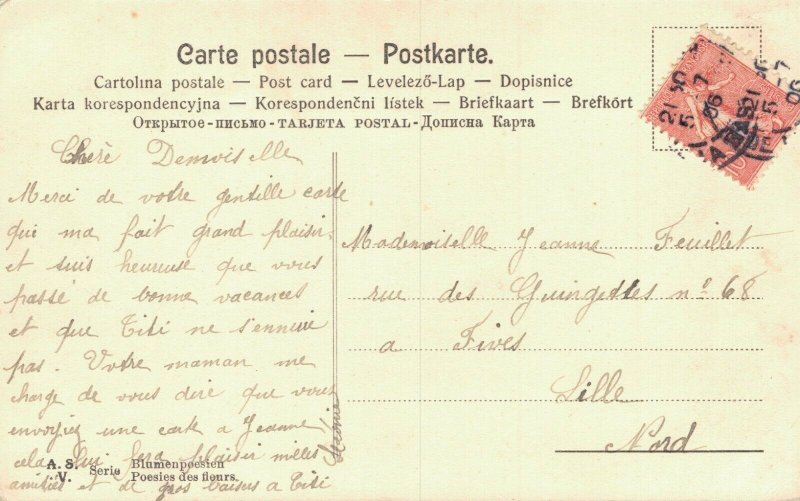 Carte postale — Postkarte.
Cartolina postale — Post card — Levelező-Lap — Dopisnice
Karta korespondencyjna — Korespondenčni lístek — Briefkaart — Brefkort
Открытое-письмо-TARJETA POSTAL-Дописна Карта
Cherè Demoiselle
Merci de votre gentille carte
qui ma fait grand plaisir.
et suis heureuse que vous
passé de bonne vacances
et que Titi ne s'ennuie
pas. Votre maman me
charge de vous dire que vous
envoyiez une carte a Jeanne
cela lui fera plaisir milles
amitiés et de gros baisers a Titi
A. S. V. Serie Blumenpoesien
Poesies des fleurs.
Mademoiselle Jeanne Feuillet
rue des Guingettes nº 68
a Fives
Lille
Nord
21 5
06